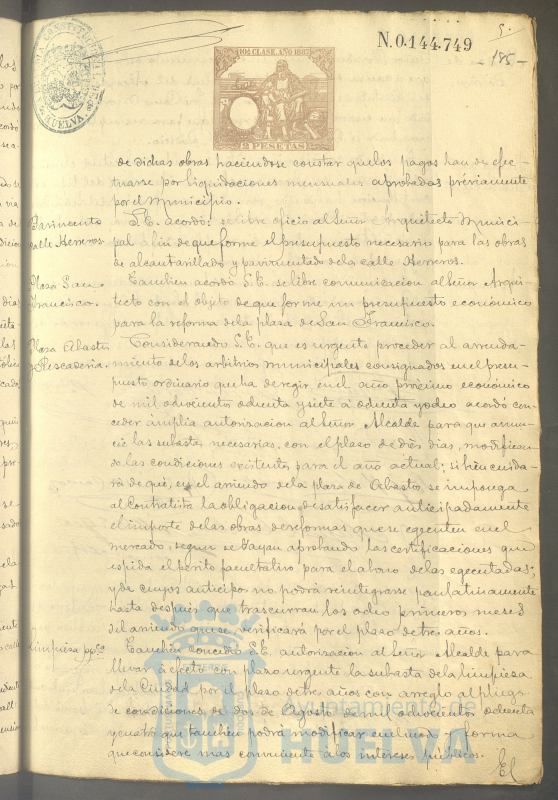 5.
N.0.144.749
-185-
10ª CLASE. AÑO 1887
2 PESETAS
HUELVA
de dichas obras haciendose constar que los pagos han de efec-
tuarse por liquidaciones mensuales aprobadas préviamente
por el Municipio.
Pavimento
calle Herreros.
S.E. acordó: se libre oficio al Señor Arquitecto Munici-
pal á fin de que forme el presupuesto necesario para las obras
de alcantarillado y pavimentado de la calle Herreros.
Plaza San
Francisco.
Tambien acordó S.E. se libre comunicacion al Señor Arqui-
tecto con el objeto de que forme un presupuesto económico
para la reforma de la plaza de San Francisco.
Plaza Abastos
y Pescaderia.
Considerando S.E. que es urgente proceder al arrenda-
miento de los arbitrios municipales consignados en el presu-
puesto ordinario que ha de regir en el año próximo económico
de mil ochocientos ochenta y siete á ochenta y ocho acordó con-
ceder ámplia autorizacion al Señor Alcalde para que anun-
cie las subastas necesarias, con el plazo de diez dias, modifican-
do las condiciones existentes para el año actual; si bien cuida-
rá de que, en el arriendo de la plaza de Abastos, se imponga
al Contratista la obligacion de satisfacer anticipadamente
el importe de las obras de reformas que se egecuten en el
mercado, segun se vayan aprobando las certificaciones que
espida el perito facultativo para el abono de las egecutadas;
y de cuyos anticipos no podrá reintegrarse paulatinamente
hasta después que trascurran los ocho primeros meses
del arriendo que se verificará por el plazo de tres años.
Limpieza pp.ca
Tambien concedió S.E. autorizacion al Señor Alcalde para
llevar á efecto con plazo urgente la subasta de la limpieza
de la Ciudad por el plazo de tres años con arreglo al pliego
de condiciones de dos de Agosto de mil ochocientos ochenta
y cuatro que tambien podrá modificar en el modo y forma
que considere mas conveniente á los intereses públicos.
El
Ayuntamiento de
HUELVA